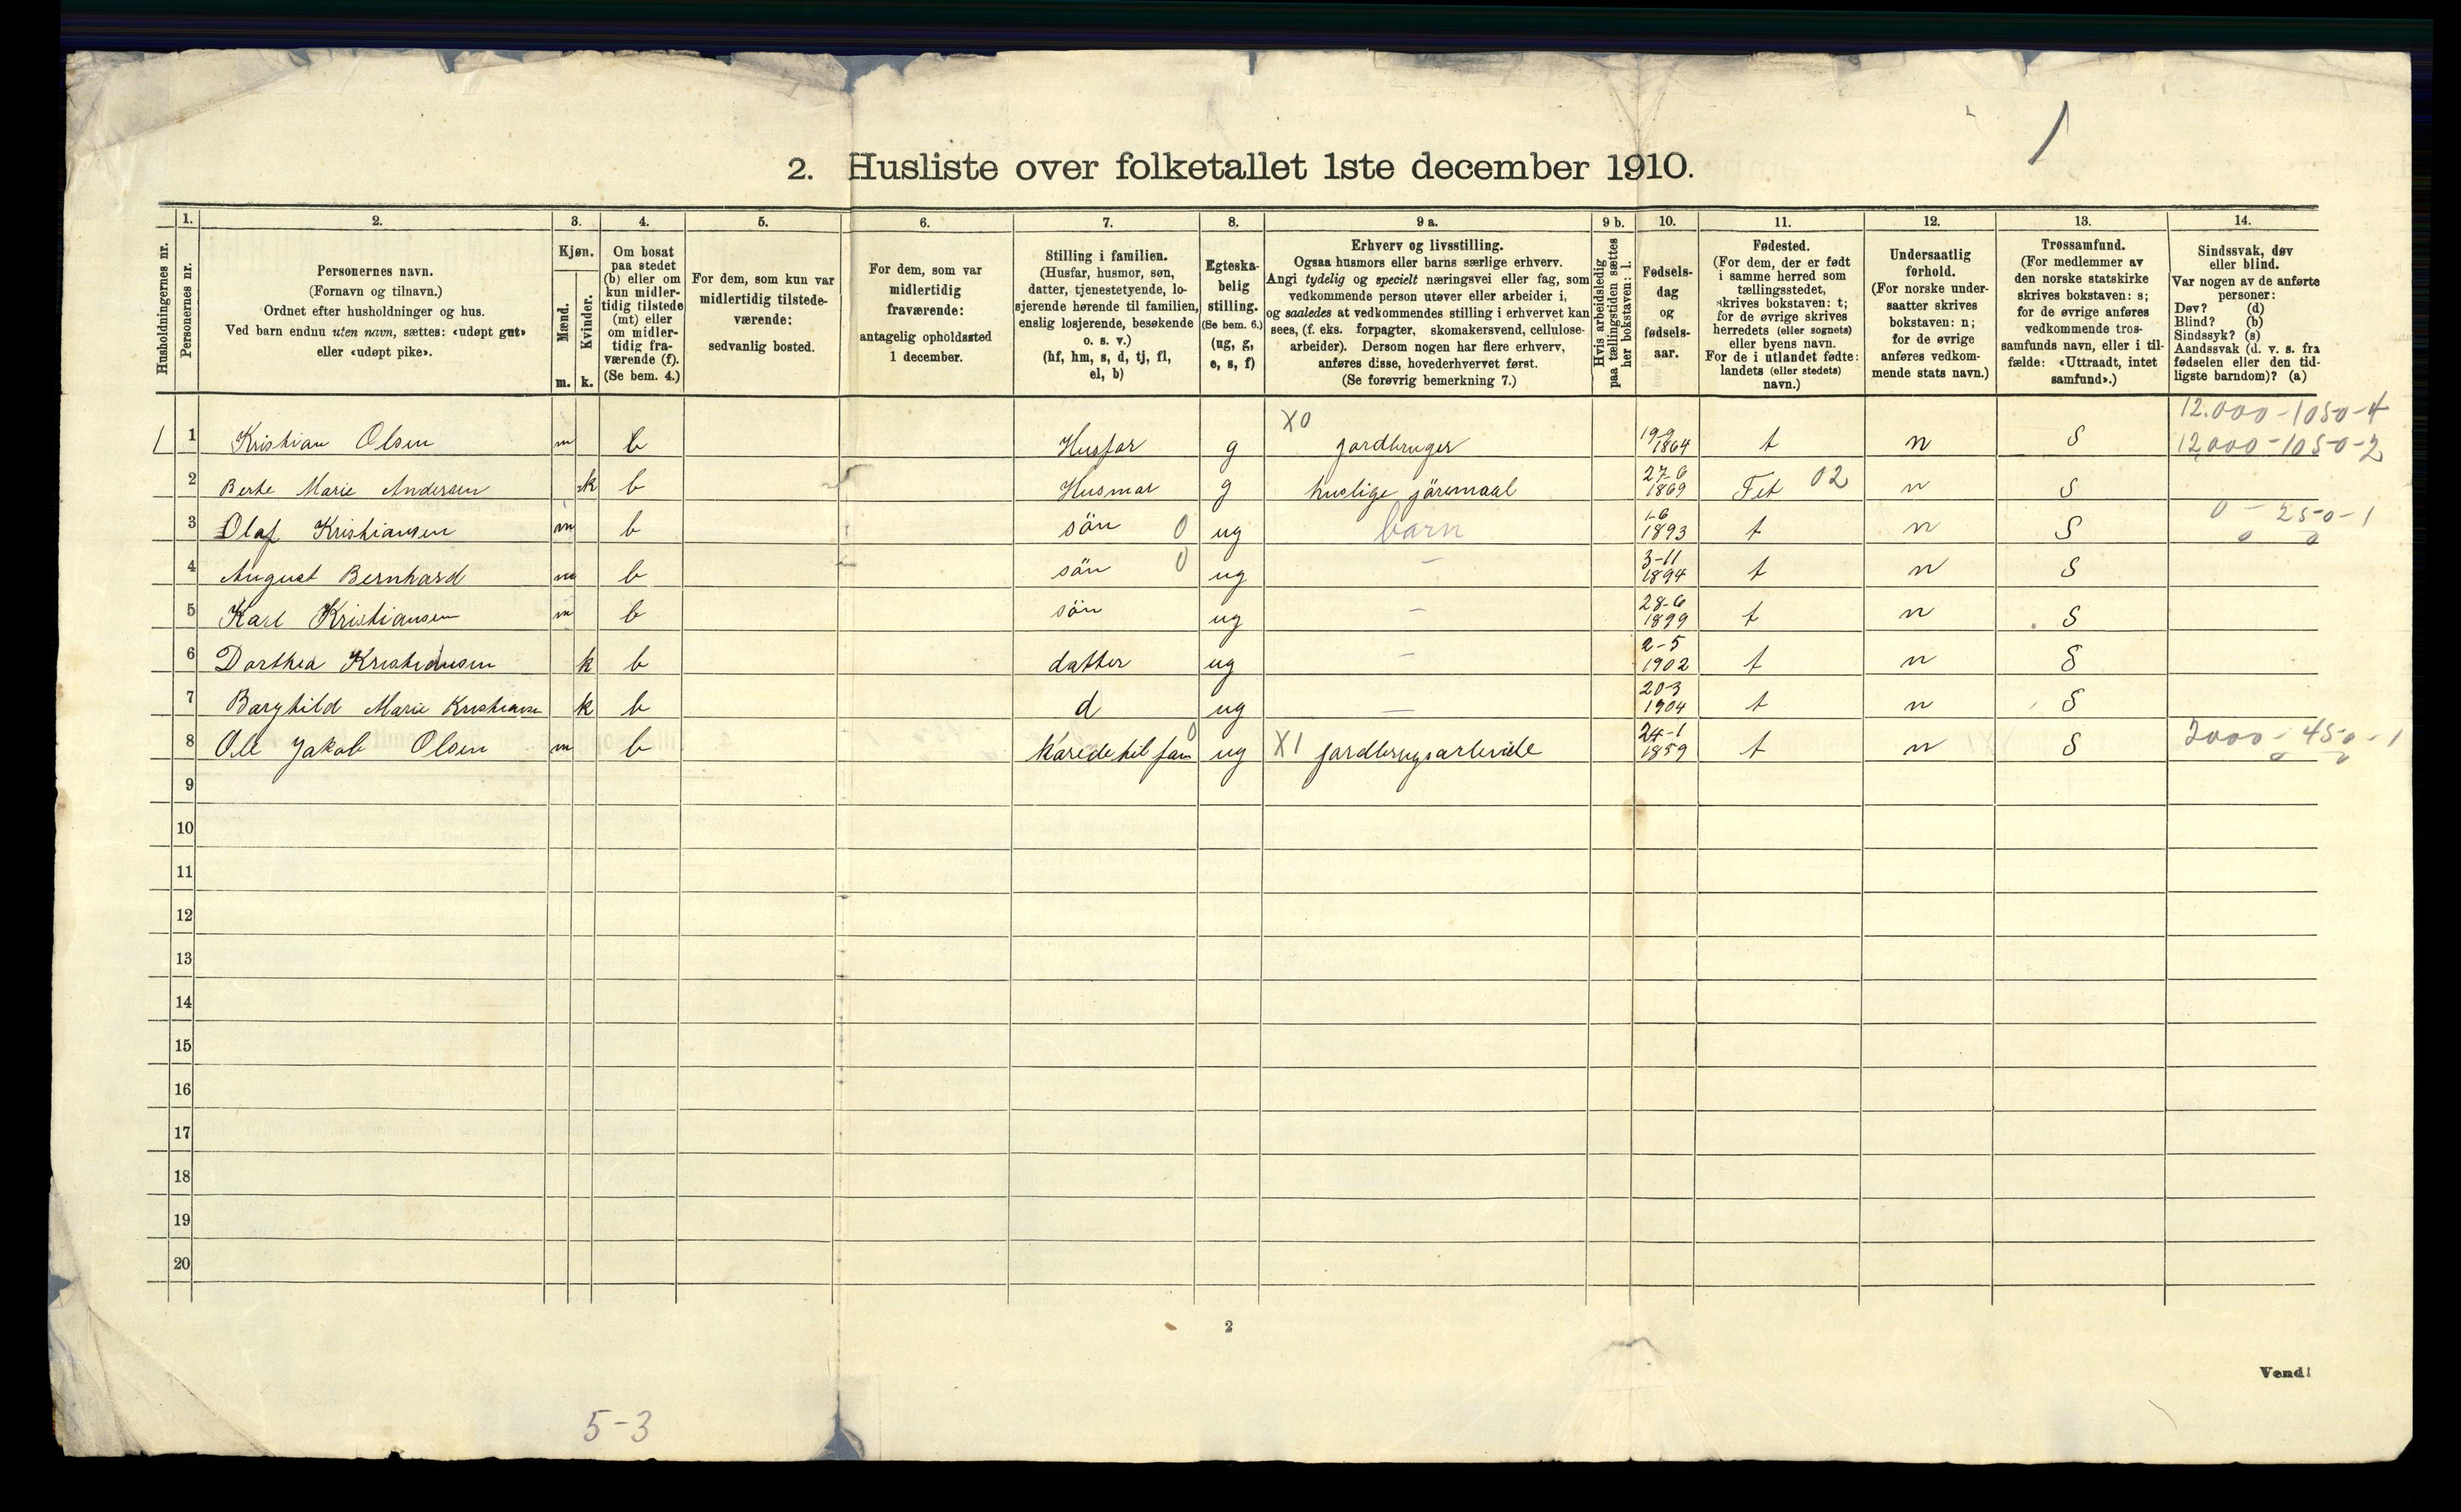 1
2. Husliste over folketallet 1ste december 1910.
Husholdningernes nr.
1.
Personernes nr.
2.
Personernes navn.
(Fornavn og tilnavn.)
Ordnet efter husholdninger og hus.
Ved barn endnu uten navn, sættes: «udøpt gut»
eller «udøpt pike».
3.
Kjøn.
Mænd.
m.
Kvinder.
k.
4.
Om bosat
paa stedet
(b) eller om
kun midler-
tidig tilstede
(mt) eller
om midler-
tidig fra-
værende (f).
(Se bem. 4.)
5.
For dem, som kun var
midlertidig tilstede-
værende:
sedvanlig bosted.
6.
For dem, som var
midlertidig
fraværende:
antagelig opholdssted
1 december.
7.
Stilling i familien.
(Husfar, husmor, søn,
datter, tjenestetyende, lo-
sjerende hørende til familien,
enslig losjerende, besøkende
o. s. v.)
(hf, hm, s, d, tj, fl,
el, b)
8.
Egteska-
belig
stilling.
(Se bem. 6.)
(ug, g,
e, s, f)
9 a.
Erhverv og livsstilling.
Ogsaa husmors eller barns særlige erhverv.
Angi tydelig og specielt næringsvei eller fag, som
vedkommende person utøver eller arbeider i,
og saaledes at vedkommendes stilling i erhvervet kan
sees, (f. eks. forpagter, skomakersvend, cellulose-
arbeider). Dersom nogen har flere erhverv,
anføres disse, hovederhvervet først.
(Se forøvrig bemerkning 7.)
9 b.
Hvis arbeidsledig
paa tællingstiden sættes
her bokstaven: l.
10.
Fødsels-
dag
og
fødsels-
aar.
11.
Fødested.
(For dem, der er født
i samme herred som
tællingsstedet,
skrives bokstaven: t;
for de øvrige skrives
herredets (eller sognets)
eller byens navn.
For de i utlandet fødte:
landets (eller stedets)
navn.)
12.
Undersaatlig
forhold.
(For norske under-
saatter skrives
bokstaven: n;
for de øvrige
anføres vedkom-
mende stats navn.)
13.
Trossamfund.
(For medlemmer av
den norske statskirke
skrives bokstaven: s;
for de øvrige anføres
vedkommende tros-
samfunds navn, eller i til-
fælde: «Uttraadt, intet
samfund».)
14.
Sindssvak, døv
eller blind.
Var nogen av de anførte
personer:
Døv? (d)
Blind? (b)
Sindssyk? (s)
Aandssvak (d. v. s. fra
fødselen eller den tid-
ligste barndom)? (a)
X0 12.000-1050-4
1 1 Kristian Olsen m b Husfar g jordbruger 19-9 1864 t n S 12,000-1050-2
2 Berte Marie Andersen k b Husmor g huslige järemaal 27-6 1869 Fet 02 n S
3 Olaf Kristiansen m b sön 0 ug barn 1-6 1893 t n S 0 - 250-1
4 August Bernhard m b sön 0 ug - 3-11 1894 t n S
5 Karl Kristiansen m b sön ug - 28-6 1899 t n S
6 Dorthea Kristiansen k b datter ug - 2-5 1902 t n S
7 Borghild Marie Kristiansen k b d ug - 20-3 1904 t n S
8 Ole Jakob Olsen m b 0 ug X1 24-1 1859 t n S 2000-450-1
9
10
11
12
13
14
15
16
17
18
19
20
2
Vend!
5-3